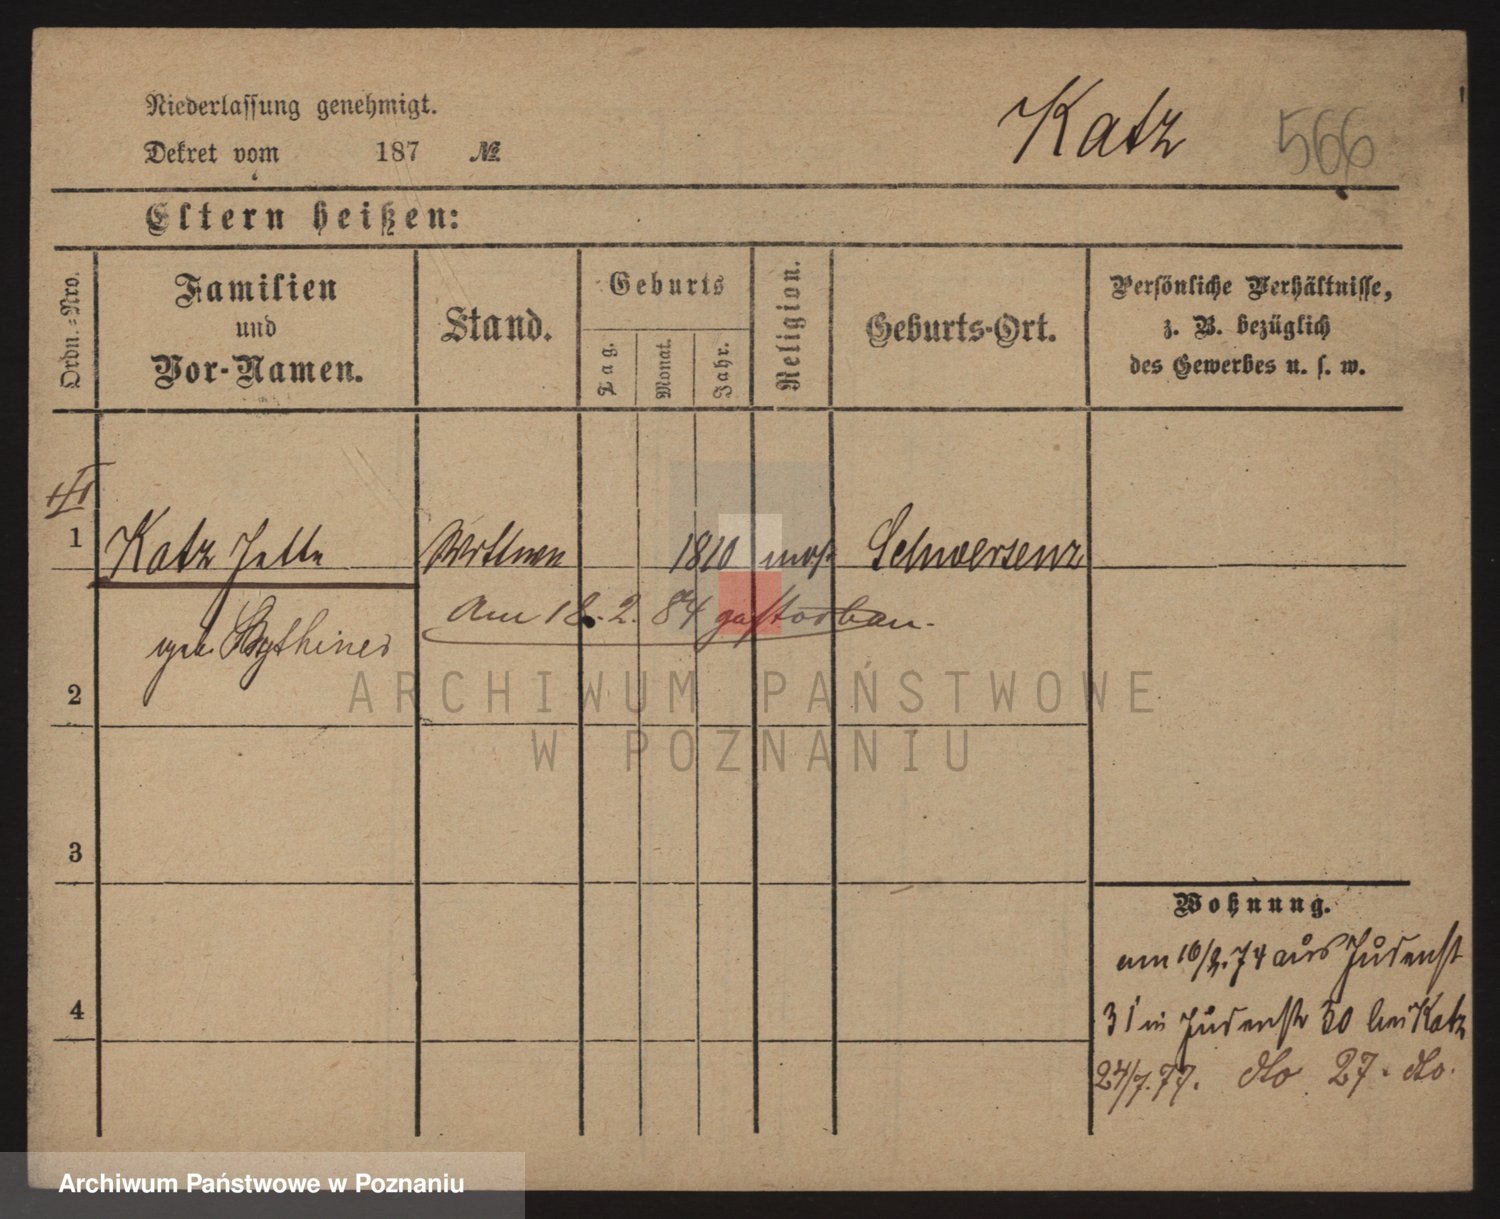 Niederlassung genehmigt.
Katz 566
Dekret vom 187 №
Eltern heißen:
Ordn.=Nro.
Familien
und
Vor-Namen.
Stand.
Geburts
Tag.
Monat.
Jahr.
Religion.
Geburts-Ort.
Persönliche Verhältnisse,
z. B. bezüglich
des Gewerbes u. s. w.
1 Katz Jette Wittwe 1810 mos. Schwersenz
Am 18.2.84 gestorben.
geb.
2
3
4
Wohnung.
am 10/2.74 aus Judenst
31 in Judenstr 30 bei Katz
24/7.77. dto 27. dto.
ARCHIWUM PAŃSTWOWE
W POZNANIU
Archiwum Państwowe w Poznaniu